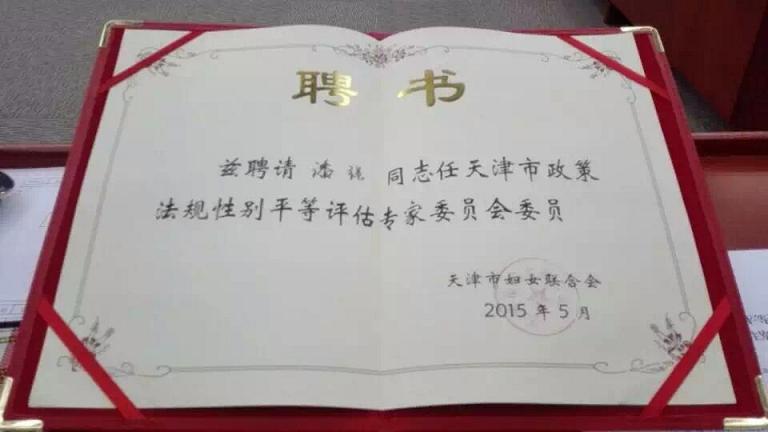 聘书
兹聘请 潘 同志任天津市政策
法规性别平等评估专家委员会委员
天津市妇女联合会
2015 年 5 月